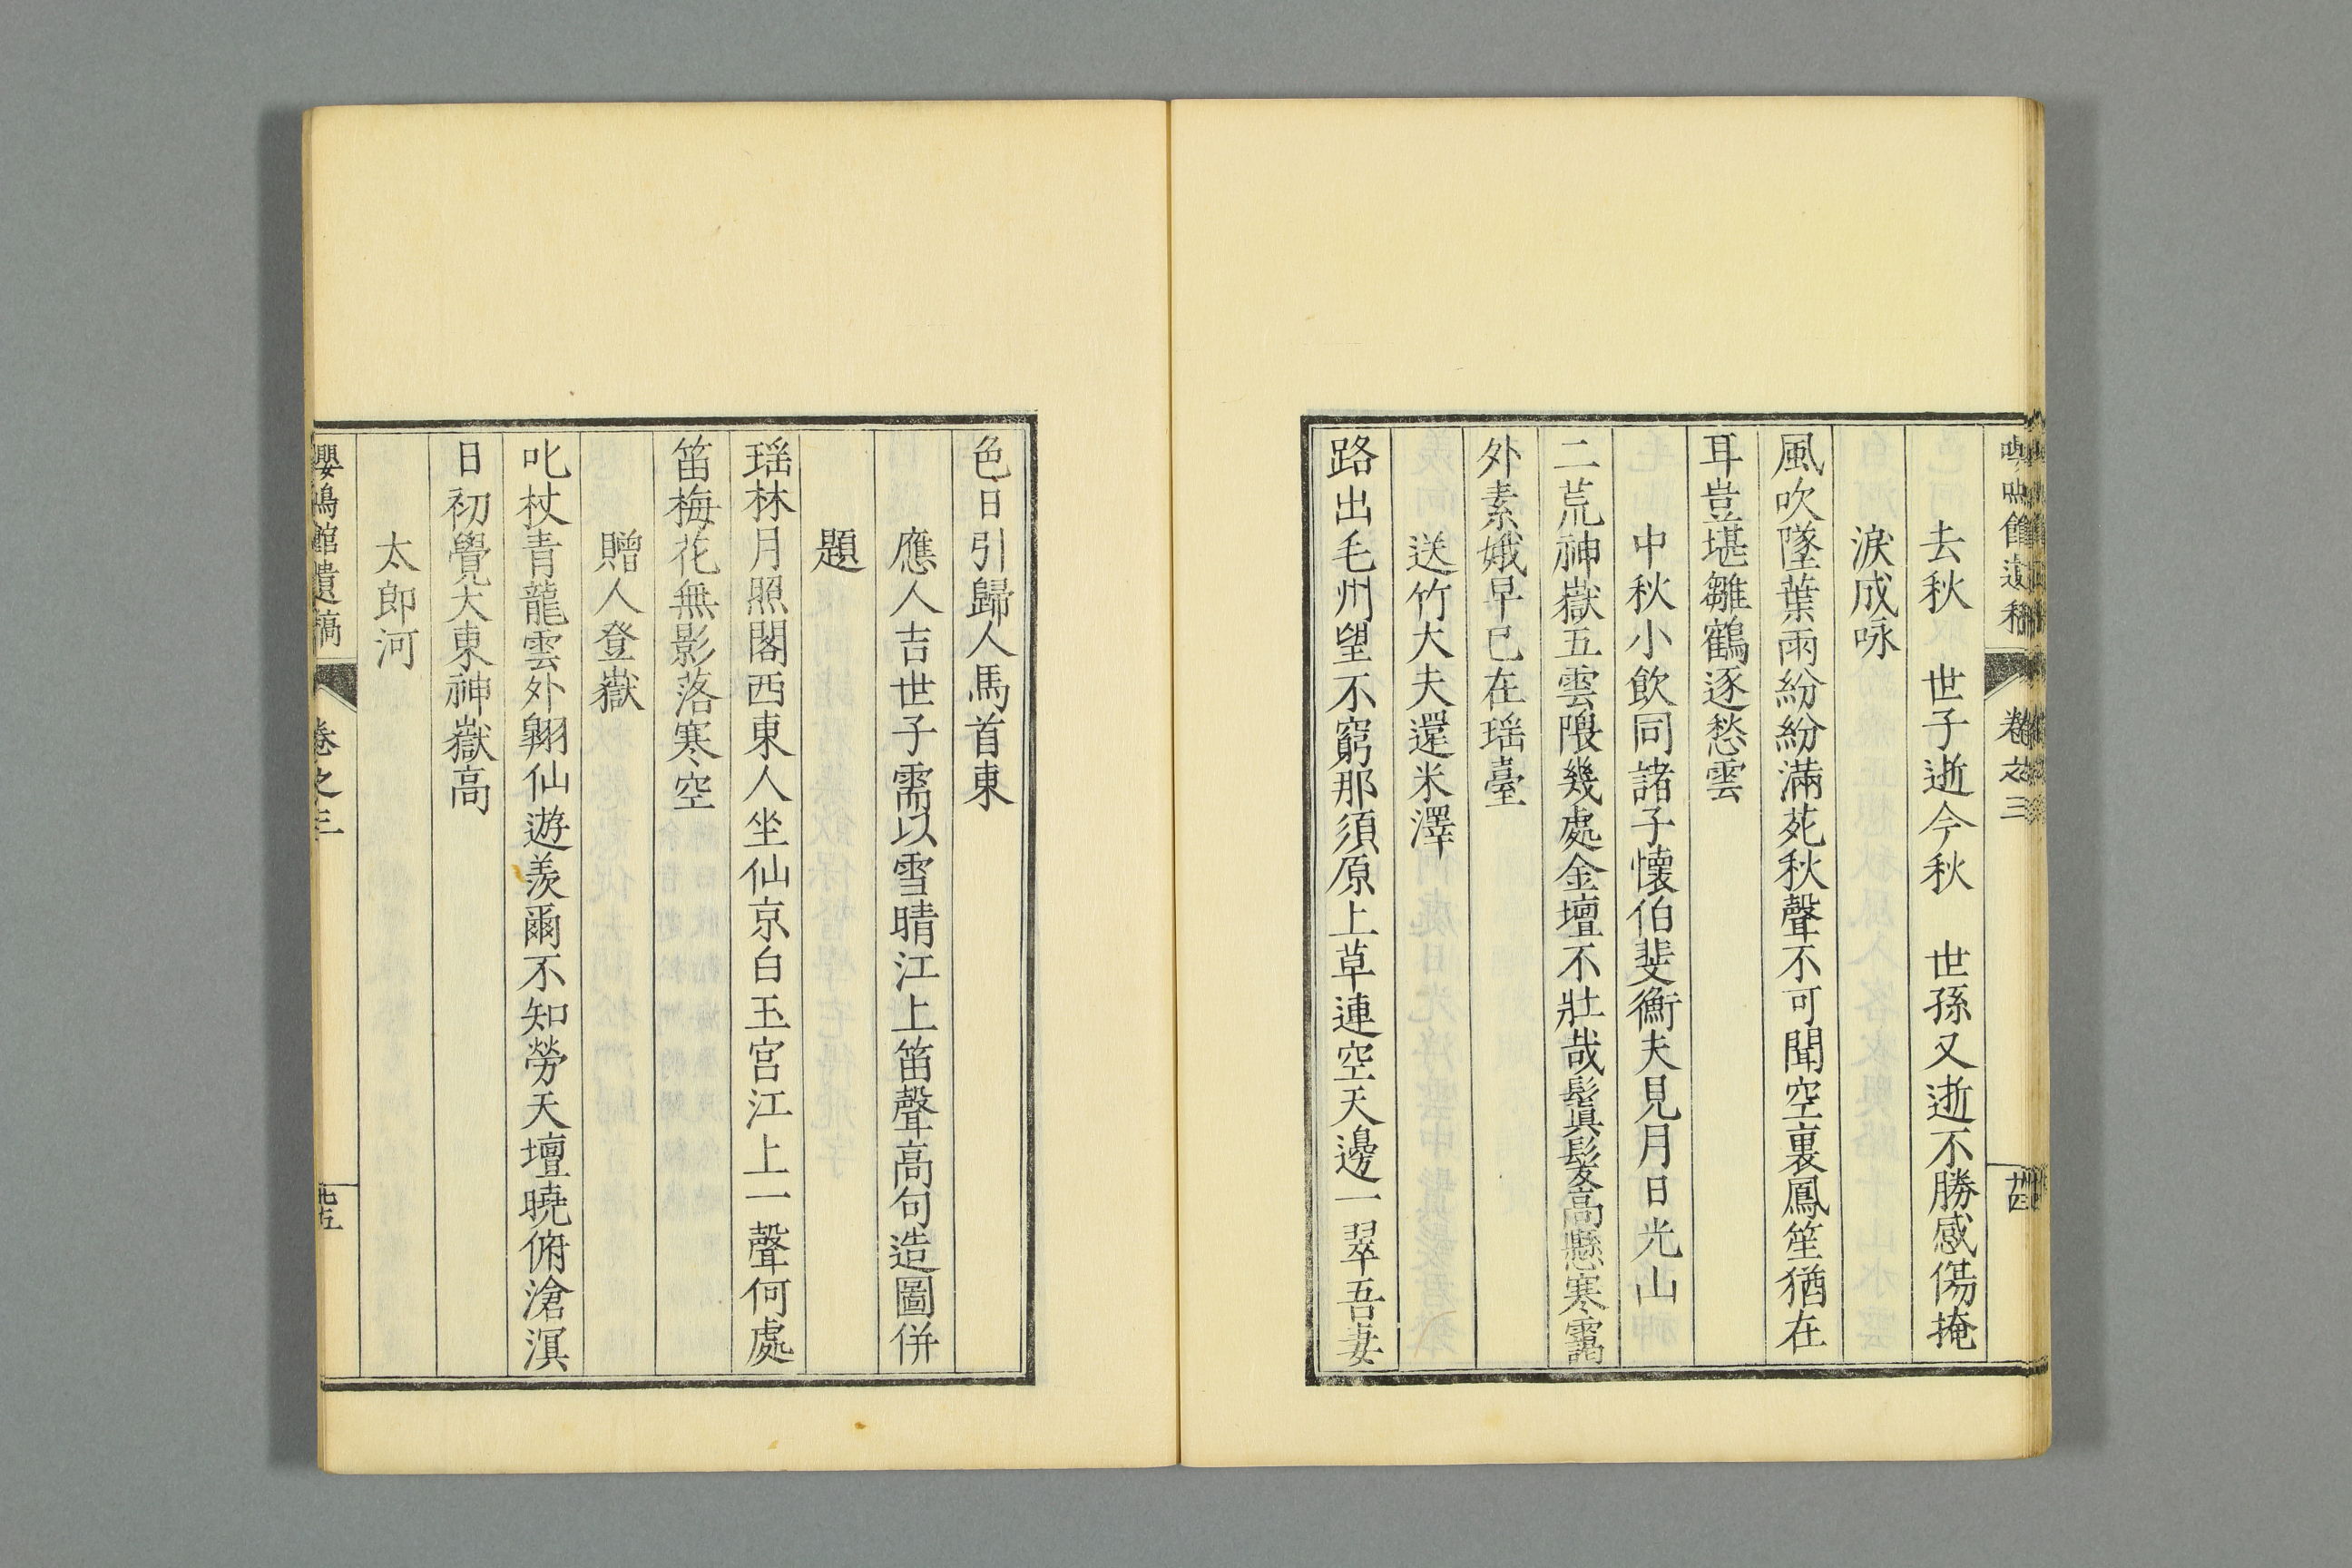 去秋　世子逝今秋　世孫又逝不勝感傷掩
淚成咏
風吹墜葉雨紛紛滿苑秋聲不可聞空裏鳳笙猶在
耳豈堪雛鶴逐愁雲
中秋小飲同諸子懷伯斐衡夫見月日光山
二荒神嶽五雲隈幾處金壇不壯哉鬒髮高懸寒靄
外素娥早已在瑶臺
送竹大夫還米澤
路出毛州望不窮那須原上草連空天邊一翠吾妻
色日引歸人馬首東
應人吉世子需以雪晴江上笛聲高句造圖併
題
瑶林月照閣西東人坐仙京白玉宮江上一聲何處
笛梅花無影落寒空
贈人登嶽
叱杖青龍雲外翺仙遊羨爾不知勞天壇曉俯滄溟
日初覺大東神嶽高
太郎河
嚶鳴館遺稿　卷之三　廿五